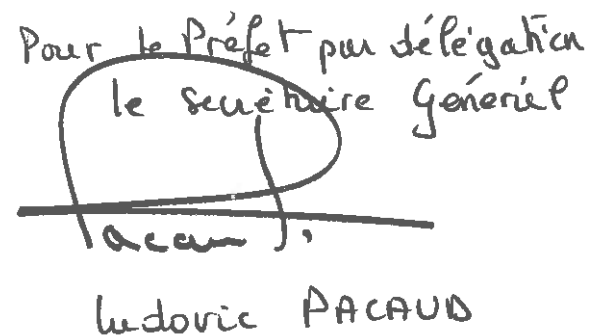 Pour le Préfet par délégation
le secrétaire Général
Pacaud.
Ludovic PACAUD